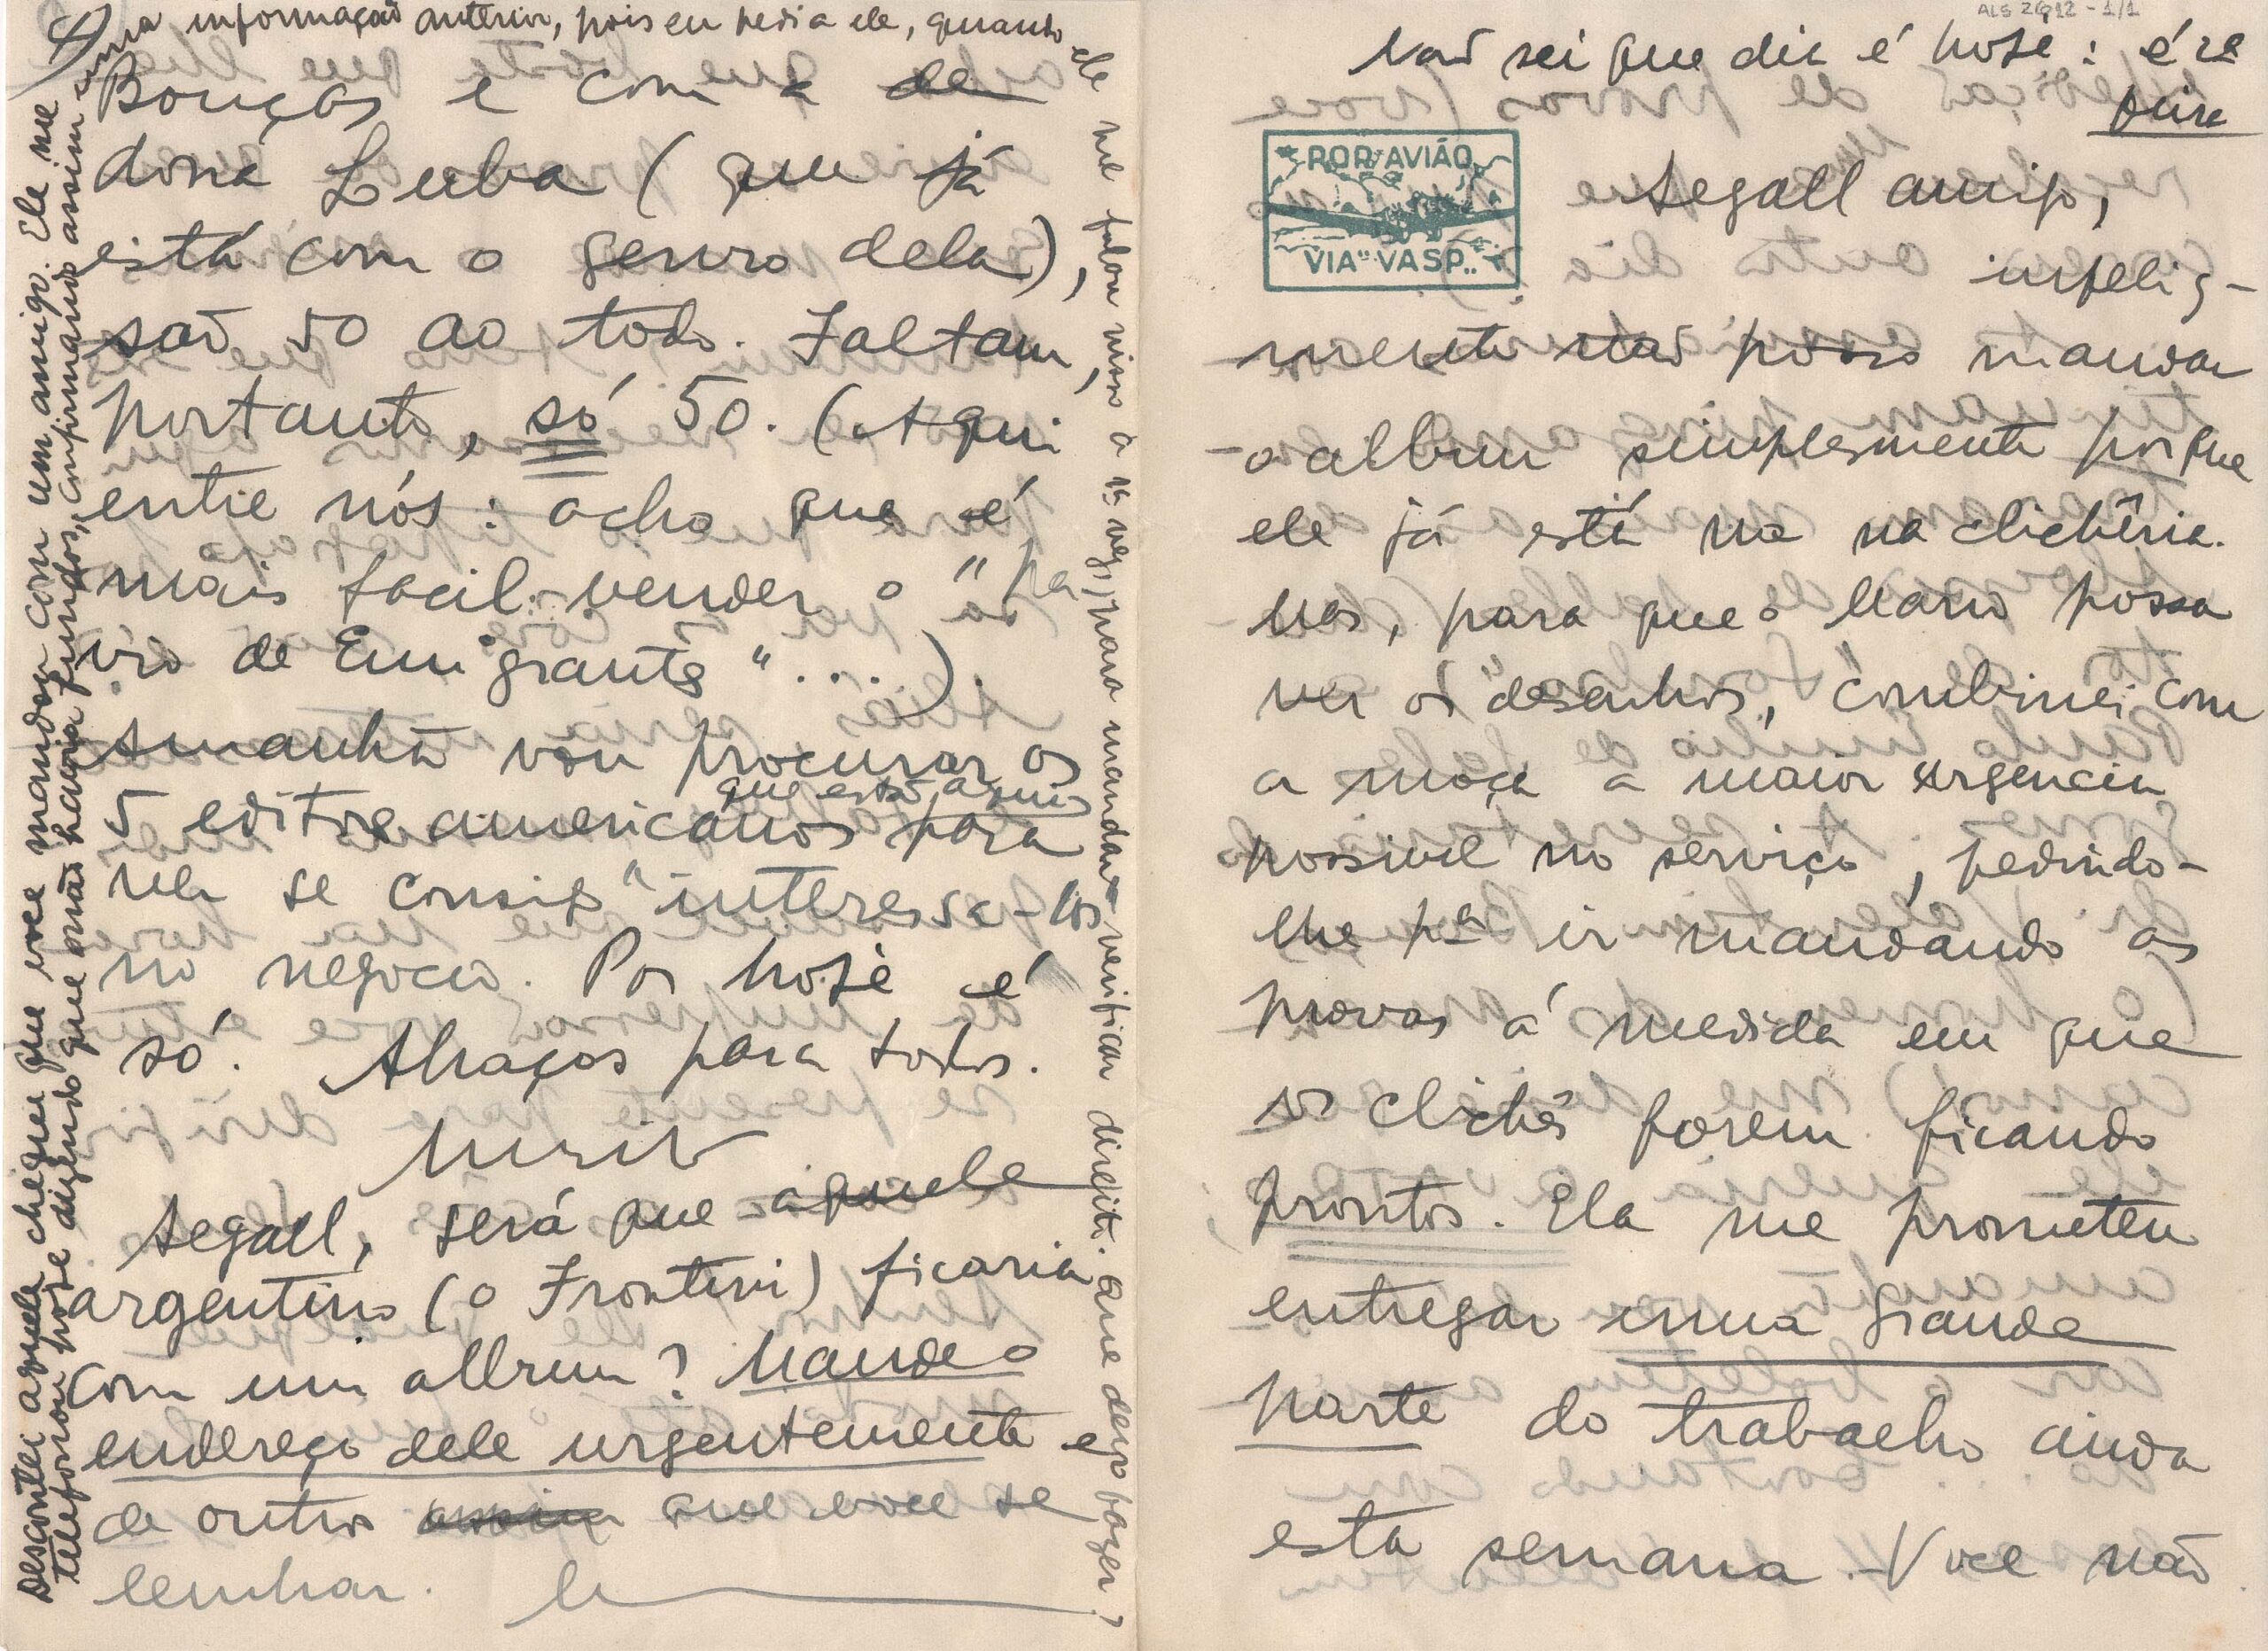 ALS 2612 - 1/1
Não sei que dia é hoje: é 4ª
feira
POR AVIÃO
VIA "VASP"
Segall amigo,
infeliz-
mente não posso mandar
o album simplesmente porque
ele já está na na clichêria.
Mas, para que o Mario possa
ver os desenhos, combinei com
a moça a maior urgencia
possivel no serviço, pedindo-
lhe pª ir mandando as
provas á medida em que
os clichês forem ficando
prontos. Ela me prometeu
entregar uma grande
parte do trabalho ainda
esta semana. Voce não
Bouças e com a de
dona Luba (que já
está com o genro dela),
são 50 ao todo. Faltam,
portanto, só 50. (Aqui
entre nós: acho que é
mais facil vender o "Na
vio de Emigrantes"...).
Amanhã vou procurar os
que estão aqui
5 editores americanos para
ver se consigo interessa-los
no negocio. Por hoje é
só. Abraços para todos.
Murilo
Segall, será que aquele
argentino (o Frontini) ficaria
com um album? Mande o
endereço dele urgentemente e
de outros que voce se
lembrar. M
Descontei aquele cheque que voce mandou com um amigo. Ele me
telefonou hoje dizendo que não havia fundos, confirmando assim uma
uma informação anterior, pois eu pedi a ele, quando
ele me falou nisso a 1ª vez, para mandar verificar direito. Que devo fazer?